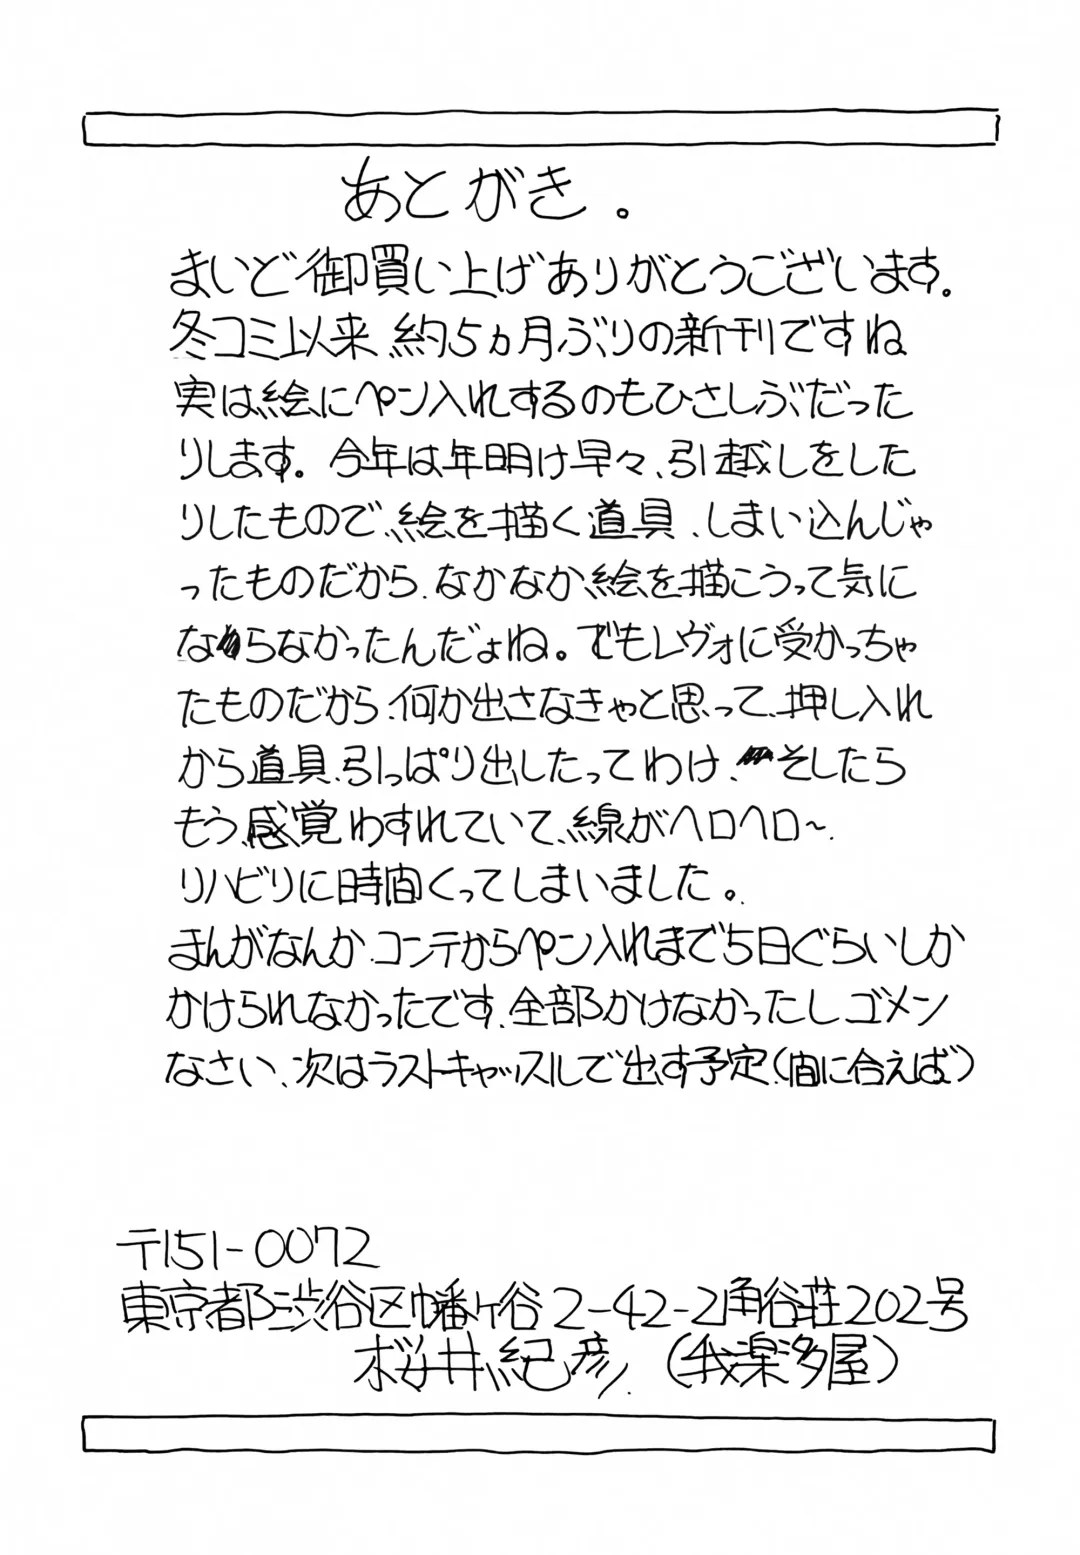 あとがき。
まいど御買い上げありがとうございます。
冬コミ以来、約5ヵ月ぶりの新刊ですね
実は絵にペン入れするのもひさしぶだった
りします。今年は年明け早々、引越しをした
りしたもので、絵を描く道具、しまい込んじゃ
ったものだから、なかなか絵を描こうって気に
ならなかったんだよね。でもレヴォに受かっちゃ
たものだから、何か出さなきゃと思って、押し入れ
から道具、引っぱり出したってわけ、そしたら
もう、感覚わすれていて、線がヘロヘロ〜。
リハビリに時間くってしまいました。
まんがなんか、コンテからペン入れまで5日ぐらいしか
かけられなかったです、全部かけなかったし、ゴメン
なさい、次はラストキャッスルで出す予定、(間に合えば)
〒151-0072
東京都渋谷区幡ヶ谷2-42-2角谷荘202号
桜井紀彦、(我楽多屋)